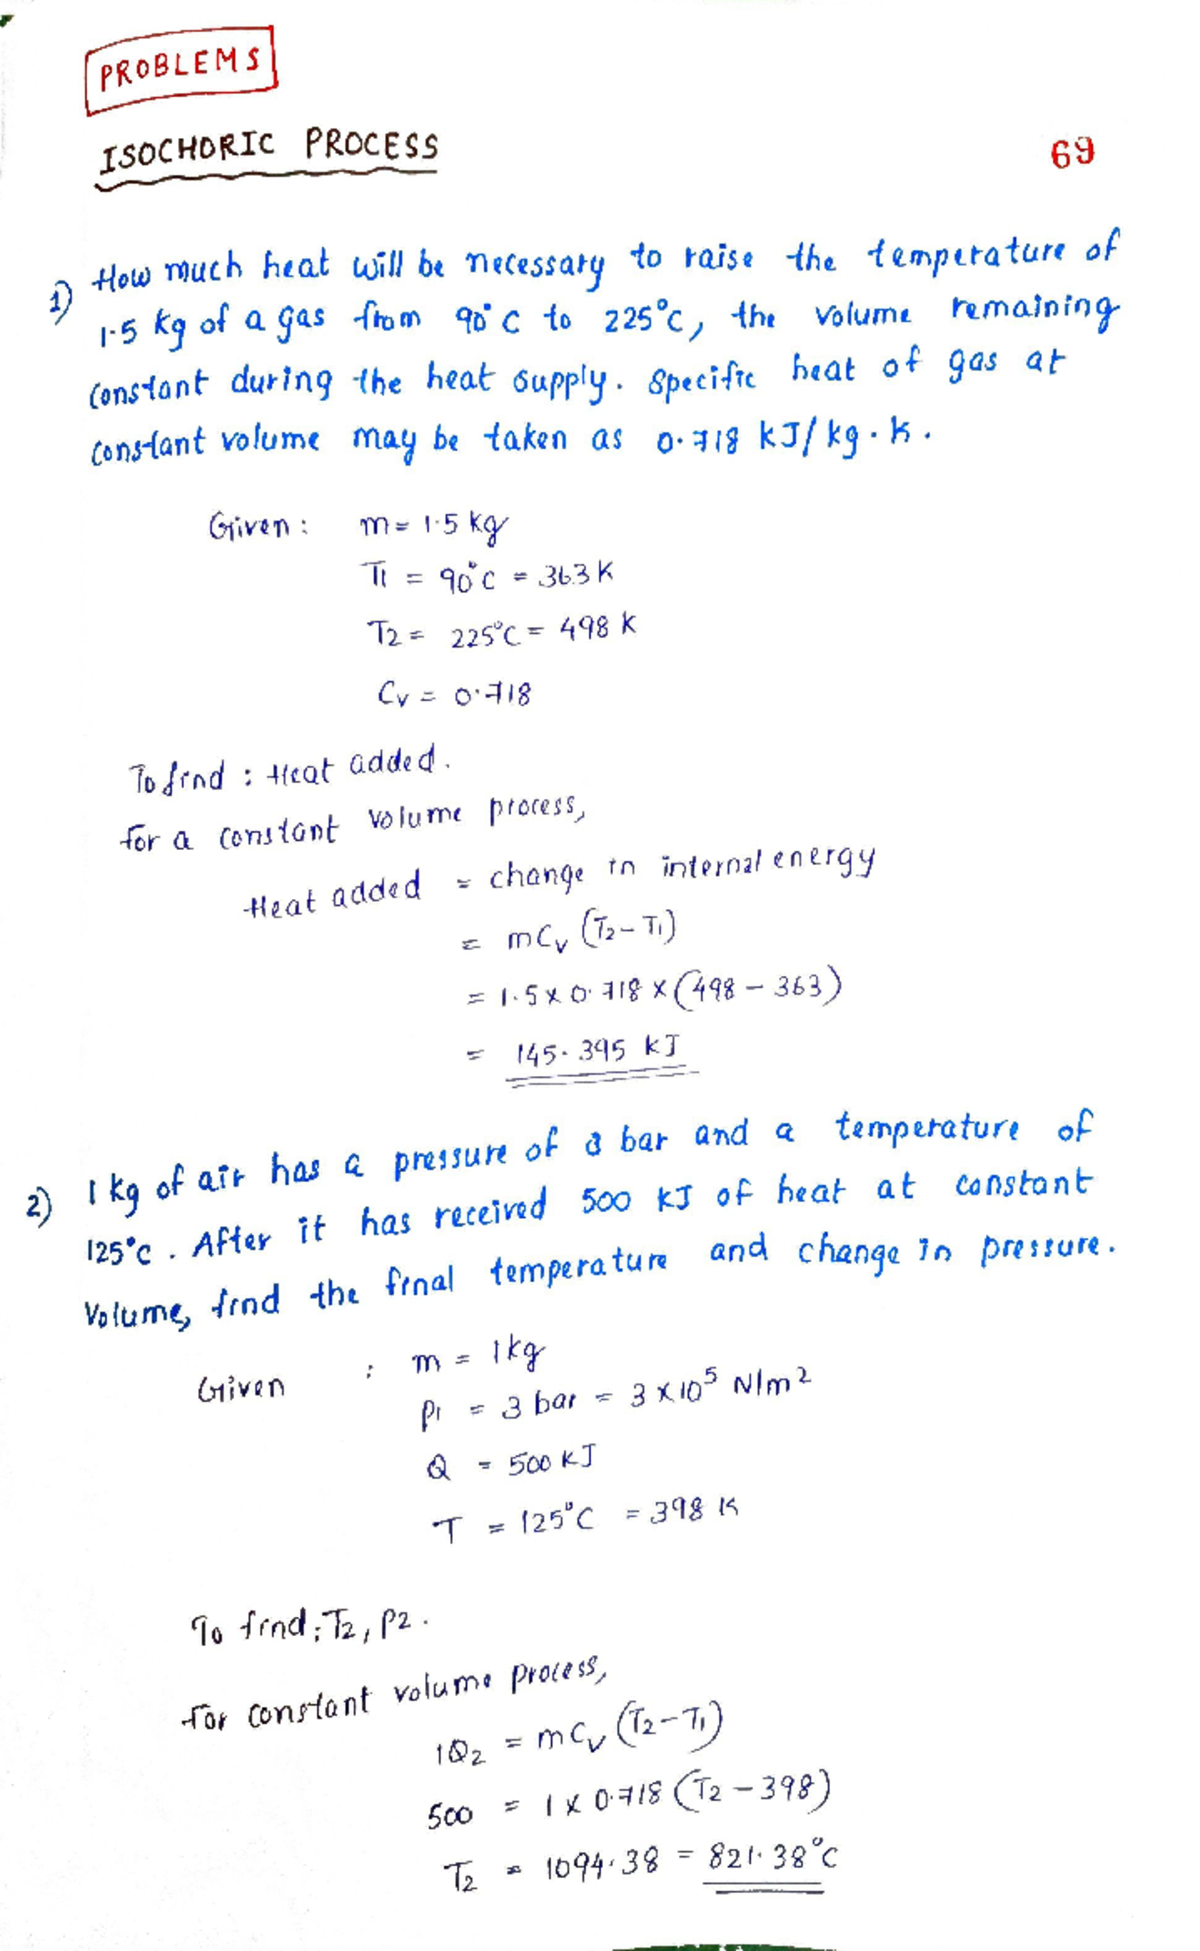 PROBLEMS
ISOCHORIC PROCESS
69
1) How much heat will be necessary to raise the temperature of
1.5 kg of a gas from 90°C to 225°C, the volume remaining
constant during the heat supply. Specific heat of gas at
constant volume may be taken as 0.718 kJ/kg.K.
Given: m = 1.5 kg
T1 = 90°C = 363 K
T2 = 225°C = 498 K
Cv = 0.718
To find : Heat added.
For a constant volume process,
Heat added = change in internal energy
= mCv (T2 - T1)
= 1.5 x 0.718 x (498 - 363)
= 145.395 kJ
2) 1 kg of air has a pressure of 3 bar and a temperature of
125°C. After it has received 500 kJ of heat at constant
Volume, find the final temperature and change in pressure.
Given : m = 1kg
P1 = 3 bar = 3 x 10⁵ N/m²
Q = 500 KJ
T = 125°C = 398 K
To find: T2, P2.
For constant volume process,
1Q2 = mCv (T2 - T1)
500 = 1 x 0.718 (T2 - 398)
T2 = 1094.38 = 821.38°C